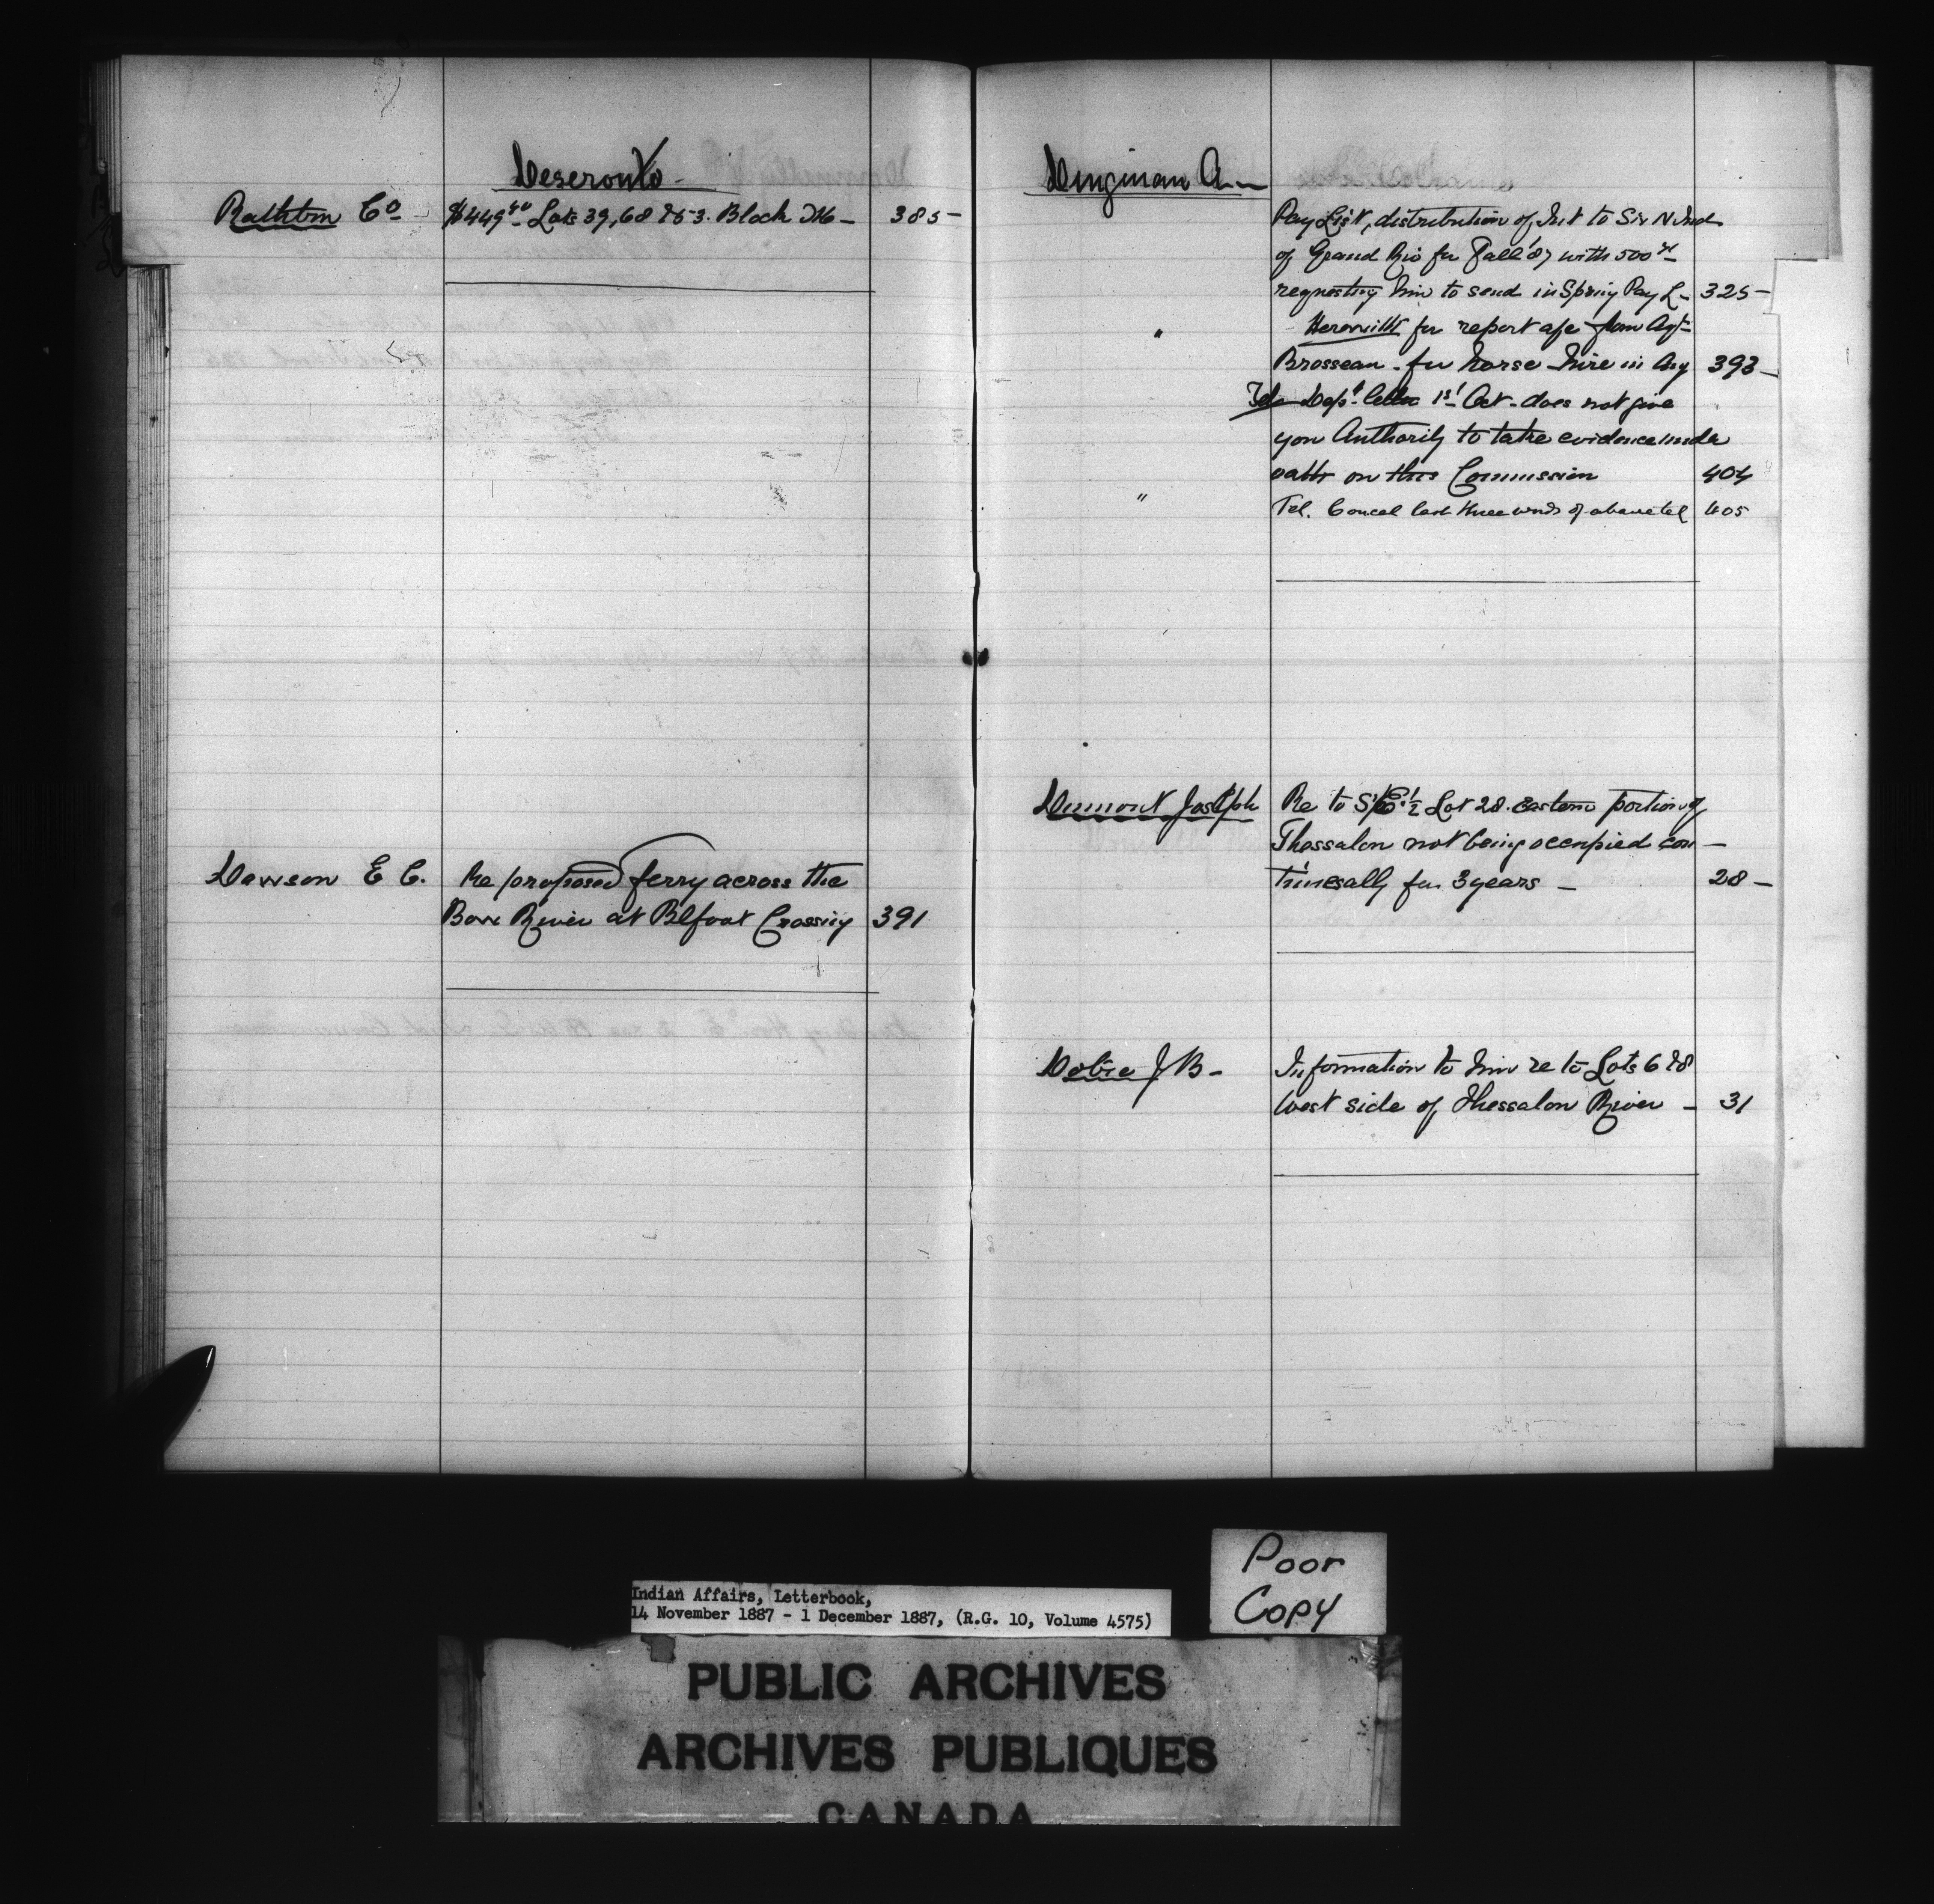 Deseronto
Rathbun Co $449.40 Lots 39, 68 & 53. Block 385
Dawson E C. Re proposed ferry across the
Bow River at Blfoot Crossing 391
Dingman A
Pay List, distribution of Int to Six N Ind
of Grand Riv for Fall 87 with 500
requesting him to send in Spring Pay L 325
" for report a/c from Agt
Brosseau for horse hire in Aug 393
Tel Dept letter 1st Oct. does not give
you Authority to take evidence under
oath on this Commission 404
" Tel. Cancel last three words of above tel 405
Dumont Joseph Re to S.E. 1/2 Lot 28. Eastern portion of
Thessalon not being occupied con
tinually for 3 years 28
Dobie J B Information to him re to Lots 6 & 8
West side of Thessalon River 31
Poor
Copy
Indian Affairs, Letterbook,
14 November 1887 - 1 December 1887, (R.G. 10, Volume 4575)
PUBLIC ARCHIVES
ARCHIVES PUBLIQUES
CANADA